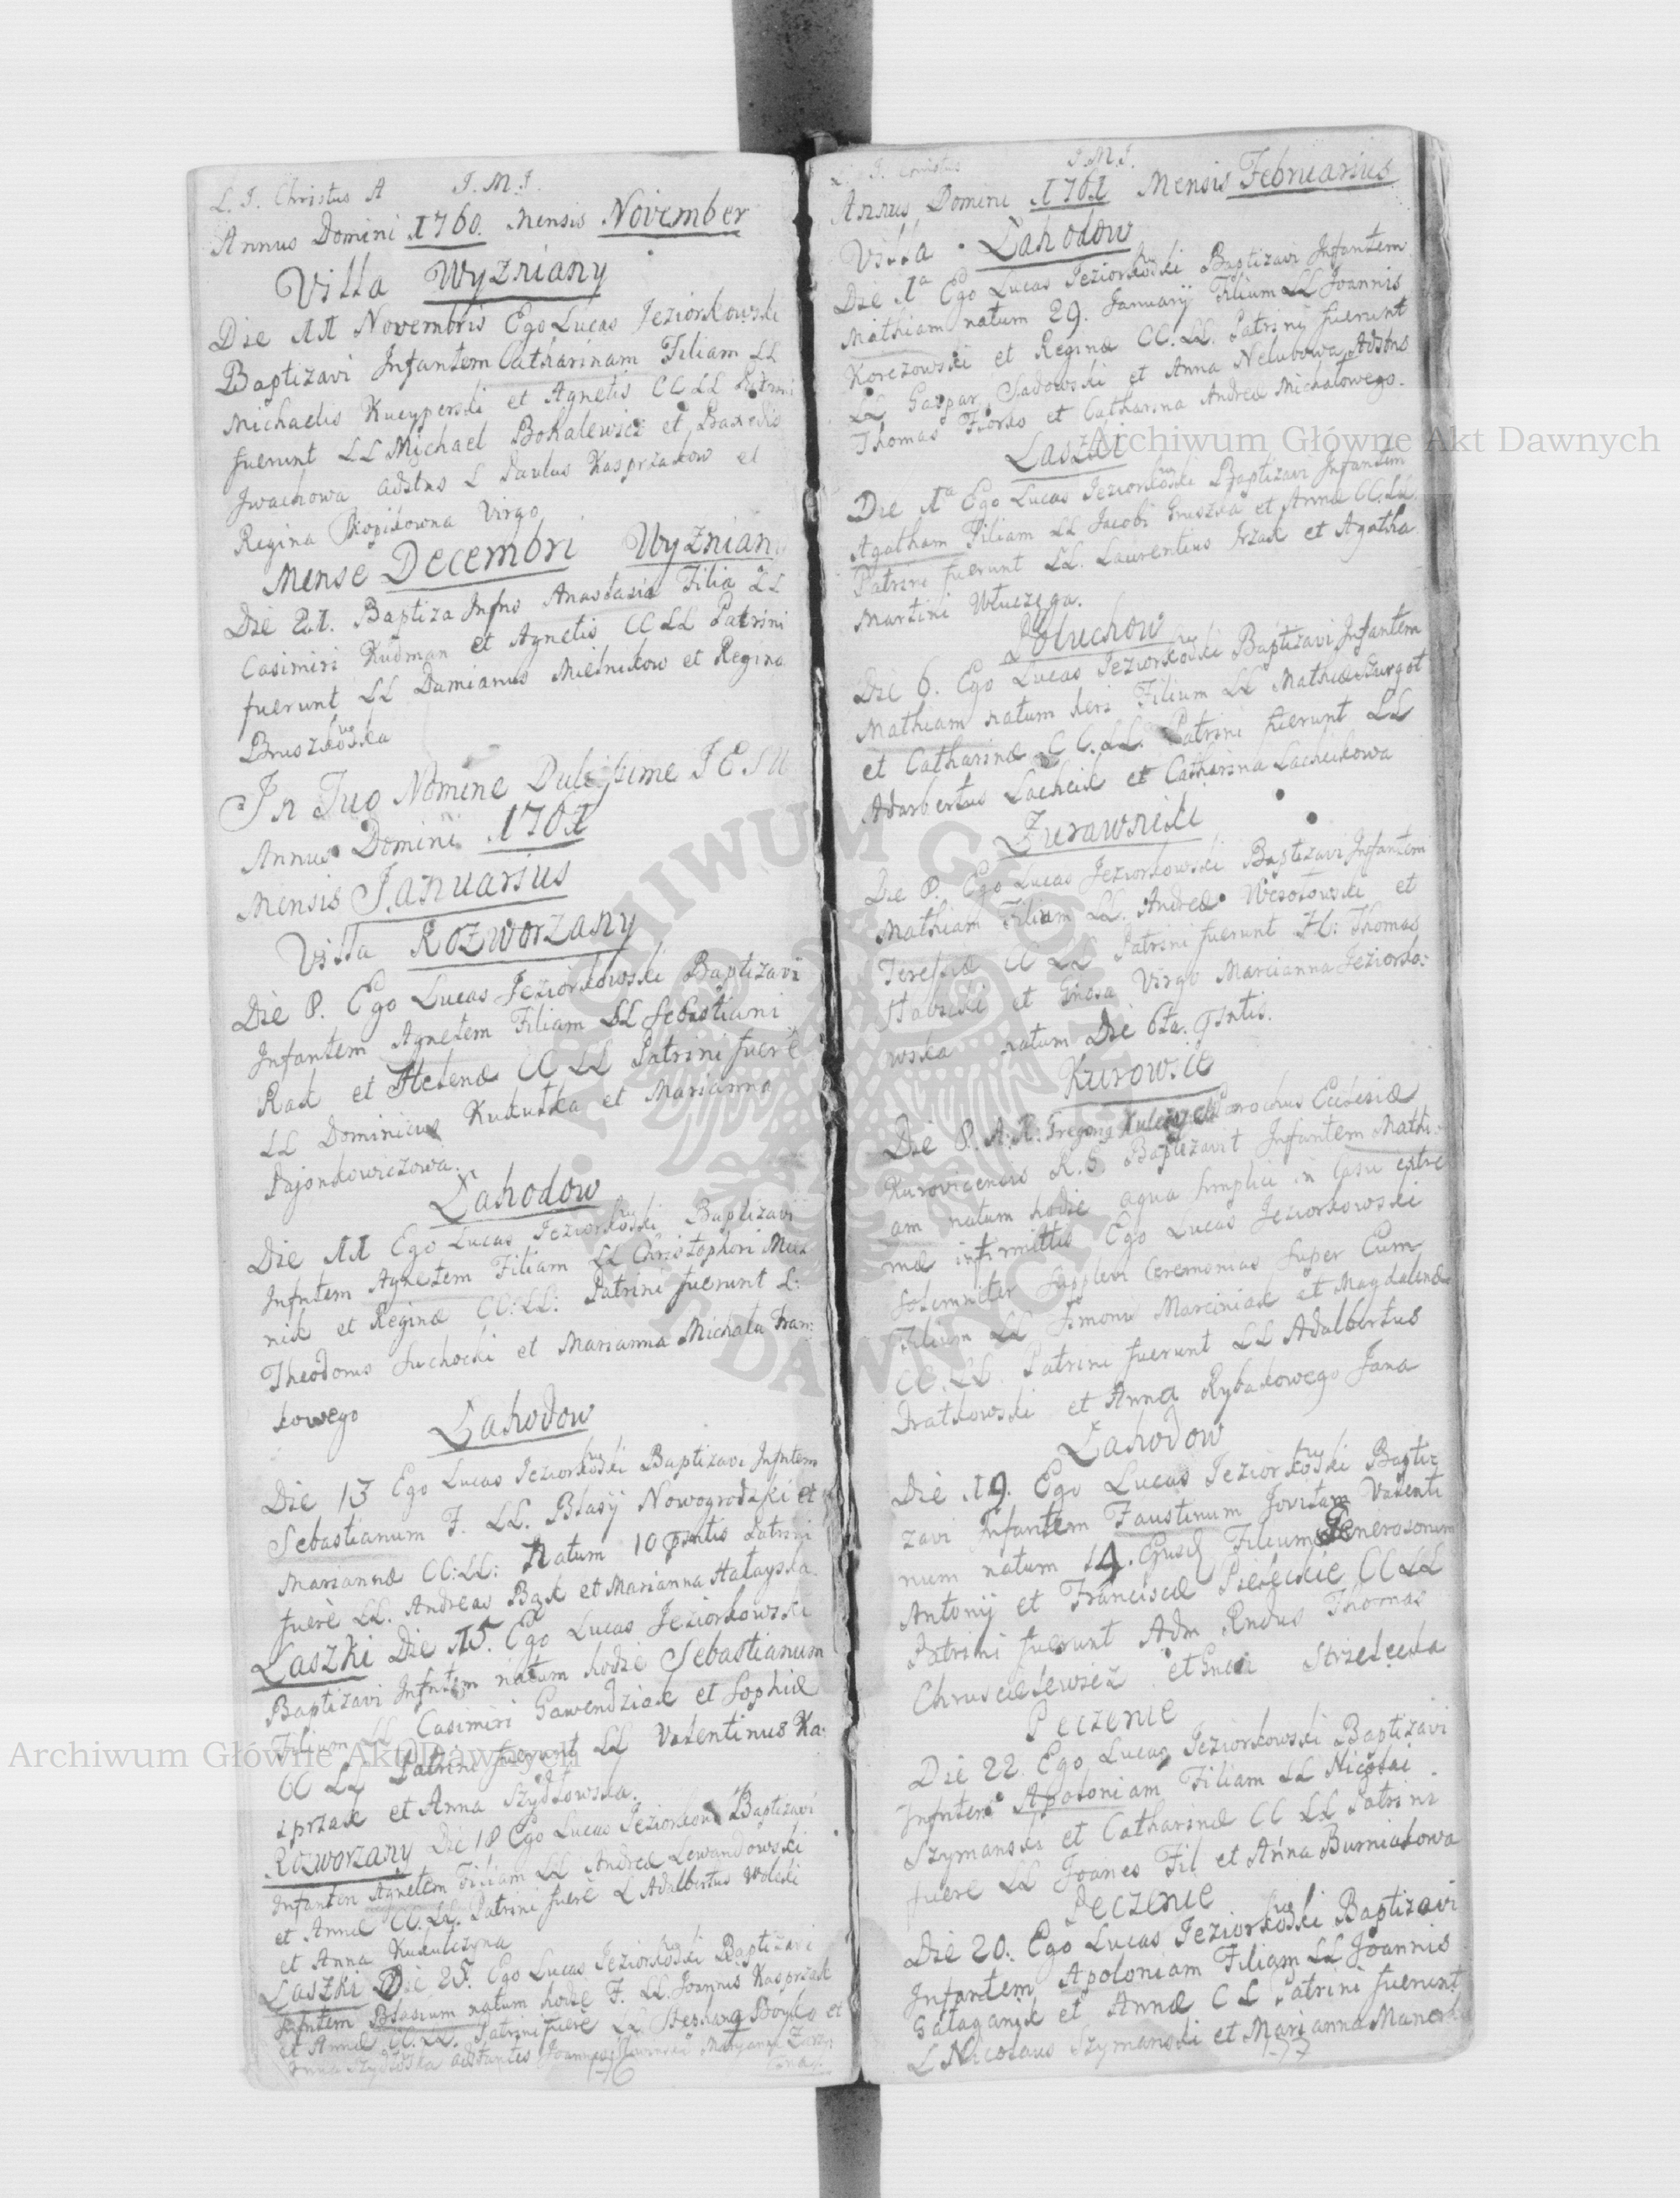 L. J. Christus A J. M. J.
Annus Domini 1760. Mensis November
Villa Wyzniany
Die 11 Novembris Ego Lucas Jeziorkowski
Baptizavi Infantem Catharinam Filiam LL
Michaelis et Agnetis CC LL Patrini
fuerunt LL Michael Bokalewicz et
Jwachowa adstns L Paulus Kasprzakow et
Regina Virgo
Mense Decembri Wyznian
Die 21. Baptiza Infns Anastasia Filia LL
Casimiri Kudman et Agnetis CC LL Patrini
fuerunt LL Damianus Mielnikow et Regina
Bruszkowska
In Tuo Nomine Dulcissime JESU
Annus Domini 1761
Mensis Januarius
Villa Rozworzany
Die 8. Ego Lucas Jeziorkowski Baptizavi
Infantem Agnetem Filiam LL Sebastiani
Rak et Helenæ CC LL Patrini fuere
LL Dominicus Kukulka et Marianna
Pajonkowiczowa.
Lahodow
Die 11 Ego Lucas Jeziorkowski Baptizavi
Infntem Agnetem Filiam LL Christophori
nik et Reginæ CC: LL: Patrini fuerunt L:
Theodorus Suchocki et Marianna Michala Fran:
kowego
Lahodow
Die 13 Ego Lucas Jeziorkowski Baptizavi Infntem
Sebastianum F. LL. Blasij Nowogrodzki et
Mariannæ CC: LL: Natum 10 Patrini
fuere LL. Andreas Bąk et Marianna
Laszki Die 15. Ego Lucas Jeziorkowski
Baptizavi Infntem natum hodie Sebastianum
Filium LL Casimiri Gawendziak et Sophiæ
CC LL Patrini fuerunt LL Valentinus Ka:
sprzak et Anna Szydłowska.
Rozworzany Die 18 Ego Lucas Jeziorkows Baptizavi
Infantem Agnetem Filiam LL Andreæ Lewandowski
et Annæ CC. LL. Patrini fuere L Adalbertus Wolski
et Anna Kukulczyna
Laszki Die 25. Ego Lucas Jeziorkowski Baptizavi
Infntem Blasium natum hodie F. LL. Joannis Kasprzak
et Annæ CC. LL. Patrini fuere LL Stephanus Boyko et
Anna adstantes Joannes
176
J. Christus J. M. J.
Annus Domini 1761 Mensis Februarius
Villa Lahodow
Die 1a Ego Lucas Jeziorkowski Baptizavi Infantem
Mathiam natum 29. Januarij Filium LL Joannis
Korczowski et Reginæ CC. LL. Patrini fuerunt
LL Gaspar Sadowski et Anna Nelubowa Adstns
Thomas et Catharina Andreæ Michałowego.
Laszki
Die 1a Ego Lucas Jeziorkowski Baptizavi Infantem
Agatham Filiam LL Jacobi Gruszka et Annæ CC. LL.
Patrini fuerunt LL. Laurentius et Agatha
Martini Włuczęga.
Połuchow
Die 6. Ego Lucas Jeziorkowski Baptizavi Infantem
Mathiam natum heri Filium LL Mathiæ Szurgot
et Catharinæ CC. LL. Patrini fuerunt LL
Adarbertus Lachcik et Catharina Lachcikowa
Zurawniki
Die 8. Ego Lucas Jeziorkowski Baptizavi Infantem
Mathiam Filium LL. Andreæ Wesołowski et
Teressiæ CC LL Patrini fuerunt Thomas
et Virgo Marcianna Jeziorko:
wska natum Die 6ta.
Kurowice
Die 8. A. R: Parochus Ecclesiæ
Kuroviciensis R. G. Baptizavit Infantem Mathi
am natum hodie aqua simplici in Casu extre
mæ infirmittis Ego Lucas Jeziorkowski
Solemniter supplevi Ceremonias super Eum
Filium LL Simonis Marciniak et Magdalenæ
CC. LL. Patrini fuerunt LL Adalbertus
Bratkowski et Anna Rybakowego Jana
Lahodow
Die 19. Ego Lucas Jeziorkowski Baptiz
zavi Infantem Faustinum Jovitam Valenti
num natum 14. Filium Generosorum
Antonij et Franciscæ CC LL
Patrini fuerunt Adm Rndus Thomas
et Strzelecka
Peczenie
Die 22. Ego Lucas Jeziorkowski Baptizavi
Infntem Apoloniam Filiam LL Nicolai
Szymanski et Catharinæ CC LL Patrini
fuere LL Joanes Fil et Anna Burniakowa
Peczenie
Die 20. Ego Lucas Jeziorkowski Baptizavi
Infantem Apoloniam Filiam LL Joannis
Galaganik et Annæ C L Patrini fuerunt
L Nicolaus Szymanski et Marianna
177
Archiwum Główne Akt Dawnych
Archiwum Główne Akt Dawnych
ARCHIWUM GŁÓWNE AKT DAWNYCH